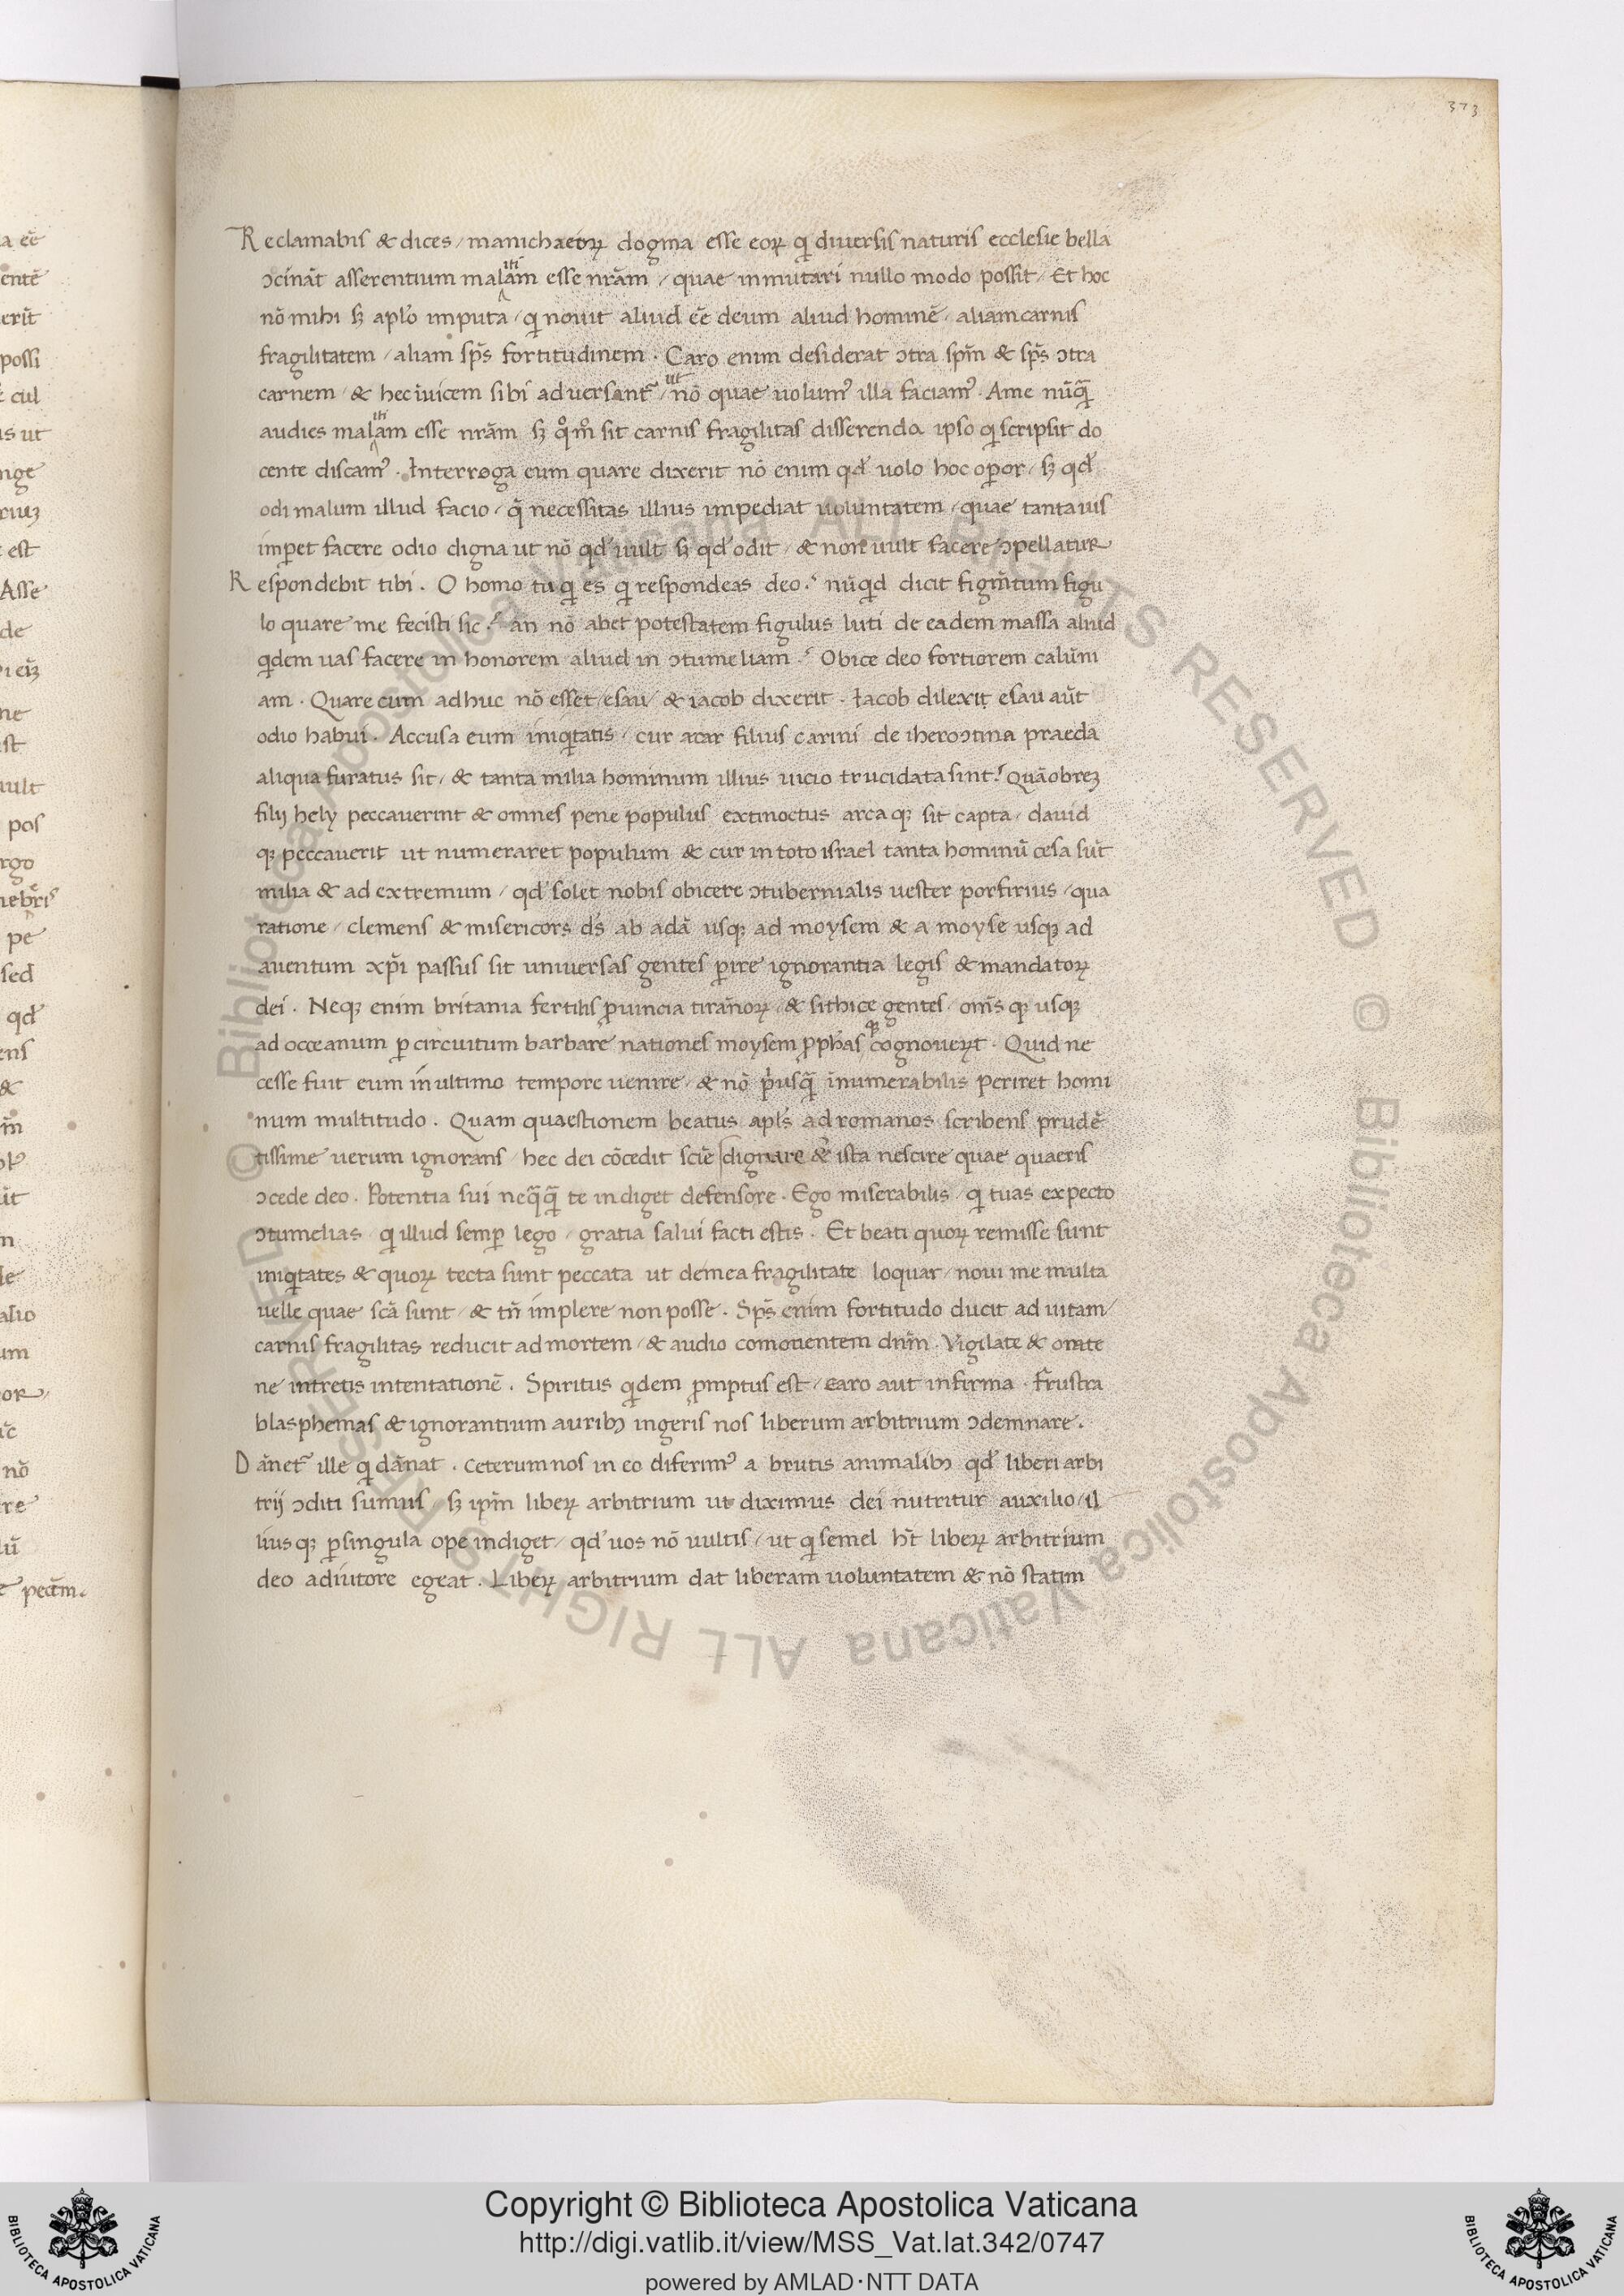 373
Reclamabis & dices / manichaeoꝝ dogma esse eoꝝ qi diuersis naturis ecclesie bella
ɔcināt asserentium mal\iti/am esse nr̄am / quae inmutari nullo modo possit / Et hoc
nō mihi sꝫ apl̄o imputa / qi nouit aliud eē deum aliud hominē / aliam carnis
fragilitatem / aliam sp̄s fortitudinem . Caro enim desiderat ɔtra sp̄m & sp̄s ɔtra
carnem / & hec īuicem sibi aduersantᷣ / \ut/ nō quae uolumꝰ illa faciamꝰ . Ame nūq̄
audies mal\iti/am esse nr̄am sꝫ qōmō sit carnis fragilitas disserenda ipso qi scripsit do
cente discamꝰ . Interroga eum quare dixerit nō enim qd̛ uolo hoc oꝑor / sꝫ qd̛
odi malum illud facio / q̄ necessitas illius impediat uoluntatem / quae tanta uis
imꝑet facere odio digna ut nō qd̛ uult sꝫ qd̛ odit / & non uult facere ɔpellatur
Respondebit tibi . O homo tu qi es qi respondeas deo .ˊ nūqid dicit figm̄tum figu
lo quare me fecisti sic .ˊ an nō abet potestatem figulus luti de eadem massa aliud
qidem uas facere in honorem aliud in ɔtumeliam .ˊ Obice deo fortiorem calūni
am . Quare cum adhuc nō esset / esau / & iacob dixerit . Iacob dilexit esau aūt
odio habui . Accusa eum iniqitatis / cur acar filius carini de iheroɔtina praeda
aliqua furatus sit / & tanta milia hominum illius uicio trucidata sint .ˊ Quāobreꝫ
filij hely peccauerint & omnes pene populus extinoctus arca qꝫ sit capta / dauid
qꝫ peccauerit ut numeraret populum & cur in toto israel tanta hominū cesa sūt
milia & ad extremum / qd̛ solet nobis obicere ɔtubernialis uester porfirius / qua
ratione / clemens & misericors ds̄ ab adā usqꝫ ad moysem & a moyse usqꝫ ad
auentum xp̄i passus sit uniuersas gentes ꝑire ignorantia legis & mandatoꝝ
dei . Neqꝫ enim britania fertilis ꝓuincia tirānoꝝ / & sithice gentes / om̄s qꝫ usqꝫ
ad occeanum ꝑ circuitum barbare nationes moysem ꝓph̄as \qꝫ/ cognouerūt . Quid ne
cesse fuit eum in ultimo tempore uenire / & nō pⁱusq̄ īnumerabilis periret homi
num multitudo . Quam quaestionem beatus apl̄s ad romanos scribens prudē
tissime uerum ignorans / hec dei cōcedit sciē dignare & ista nescire quae quaeris
ɔcede deo . Potentia sui neq̄q̄ te indiget defensore . Ego miserabilis / qi tuas expecto
ɔtumelias / qi illud semꝑ lego / gratia salui facti estis . Et beati quoꝝ remisse sunt
iniqitates & quoꝝ tecta sunt peccata ut de mea fragilitate loquar / noui me multa
uelle quae sc̄a sunt / & tn̄ implere non posse . Sp̄s enim fortitudo ducit ad uitam /
carnis fragilitas reducit ad mortem / & audio comouentem dn̄m . Vigilate & orate
ne intretis in tentationē . Spiritus qidem ꝓmptus est / caro aut infirma . Frustra
blasphemas & ignorantium auribꝫ ingeris nos liberum arbitrium ɔdemnare .
Dānetᷣ ille qi dānat . Ceterum nos in eo diferimꝰ a brutis animalibꝫ qd̛ liberi arbi
trij ɔditi sumus / sꝫ ip̄m libeꝝ arbitrium ut diximus dei nutritur auxilio / il
lius qꝫ ꝑ singula ope indiget / qd̛ uos nō uultis / ut qi semel h̄t libeꝝ arbitrium
deo adiutore egeat . Libeꝝ arbitrium dat liberam uoluntatem & nō statim
© Biblioteca Apostolica Vaticana ALL RIGHTS RESERVED © Biblioteca Apostolica Vaticana ALL RIGHTS RESERVED
Copyright © Biblioteca Apostolica Vaticana
http://digi.vatlib.it/view/MSS_Vat.lat.342/0747
powered by AMLAD·NTT DATA
BIBLIOTECA APOSTOLICA VATICANA
BIBLIOTECA APOSTOLICA VATICANA